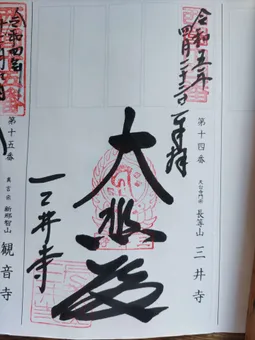 令和五年
四月二十三日
奉拝
第十四番
天台寺門宗
長等山
三井寺
大悲殿
三井寺
令和四年
第十五番
真言宗
新那智山
観音寺